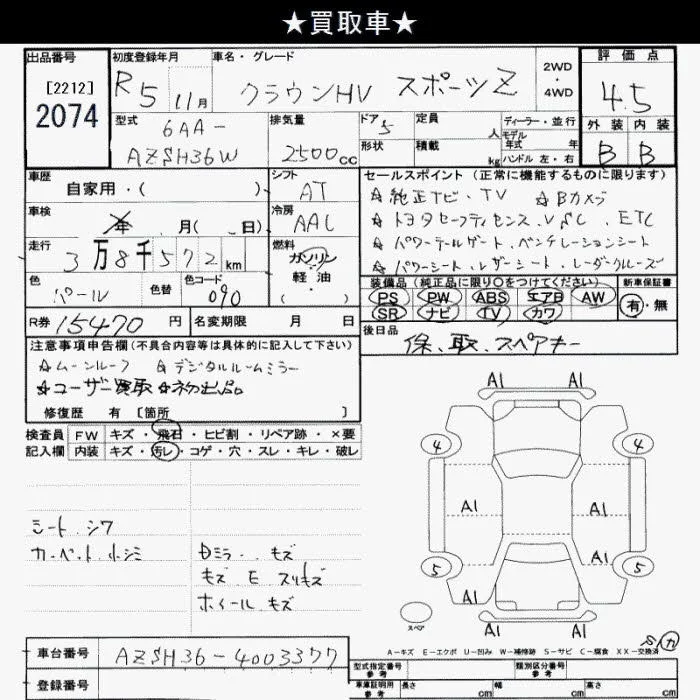 ★買取車★
出品番号
[2212]
2074
初度登録年月
R5 11月
車名・グレード
クラウンHV スポーツZ
2WD
・
4WD
評価点
4.5
外装 内装
B B
型式
6AA-
AZSH36W
排気量
2500cc
ドア 5
形状
定員 人
積載 kg
ディーラー・並行
モデル年式 年
ハンドル 左・右
車歴
自家用・( )
シフト
AT
車検
年 月( 日)
冷房
AAC
走行
3万8千572km
燃料
ガソリン
軽油
( )
色
パール
色替
色コード
090
R券 15470円
名変期限 月 日
セールスポイント(正常に機能するものに限ります)
☆純正ナビ・TV ☆Bカメラ
☆トヨタセーフティセンス、VSC、ETC
☆パワーテールゲート、ベンチレーションシート
☆パワーシート、レザーシート、レーダークルーズ
装備品(純正品に限り○をつけてください)
PS PW ABS エアB AW
SR ナビ TV カワ
新車保証書
有・無
後日品
保、取、スペアキー
注意事項申告欄(不具合内容等は具体的に記入して下さい)
☆ムーンルーフ ☆デジタルルームミラー
☆ユーザー買取 ☆初出品
修復歴 有[箇所 ]
検査員
記入欄
FW キズ・飛石・ヒビ割・リペア跡・×要
内装 キズ・汚レ・コゲ・穴・スレ・キレ・破レ
シート、シワ
カーペット、小シミ
ミラー、キズ
キズ、E、スリキズ
ホイール、キズ
A1
A1
4 4
A1 A1
A1
5 5
A1
A1
スペア
A-キズ E-エクボ U-凹み W-補修跡 S-サビ C-腐食 XX-交換済
車台番号 AZSH36-4003377
登録番号
型式指定番号 参考
類別区分番号 参考
車庫証明用 参考
長さ cm
幅 cm
高さ cm